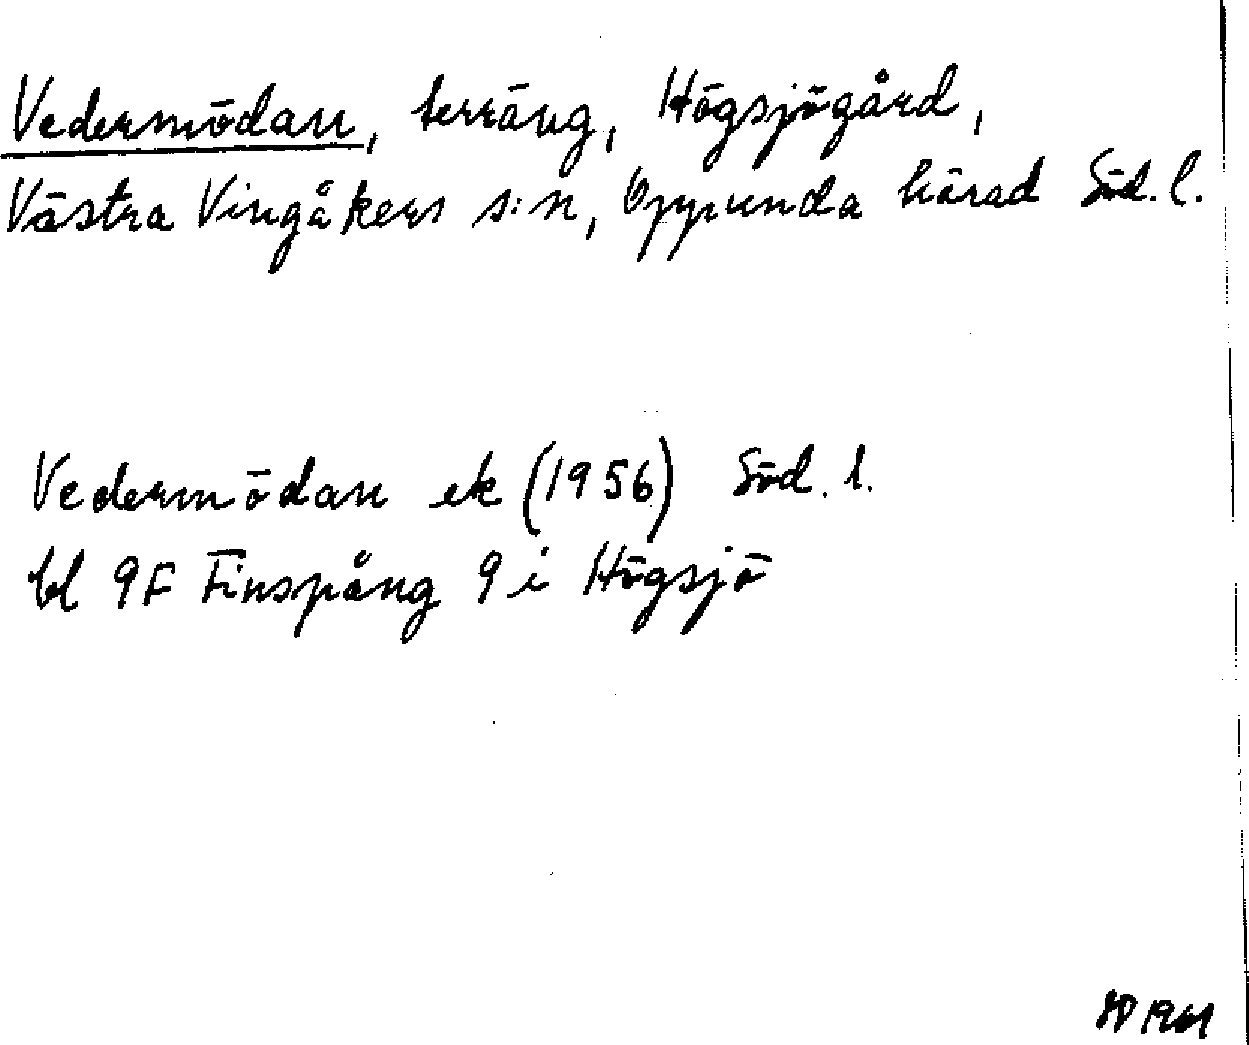 Vedermödan, terräng, Högsjögård,
Västra Vingåkers s:n, Oppunda härad Söd. l.
Vedermödan ek (1956) Söd. l.
bl 9F Finspång 9 i Högsjö